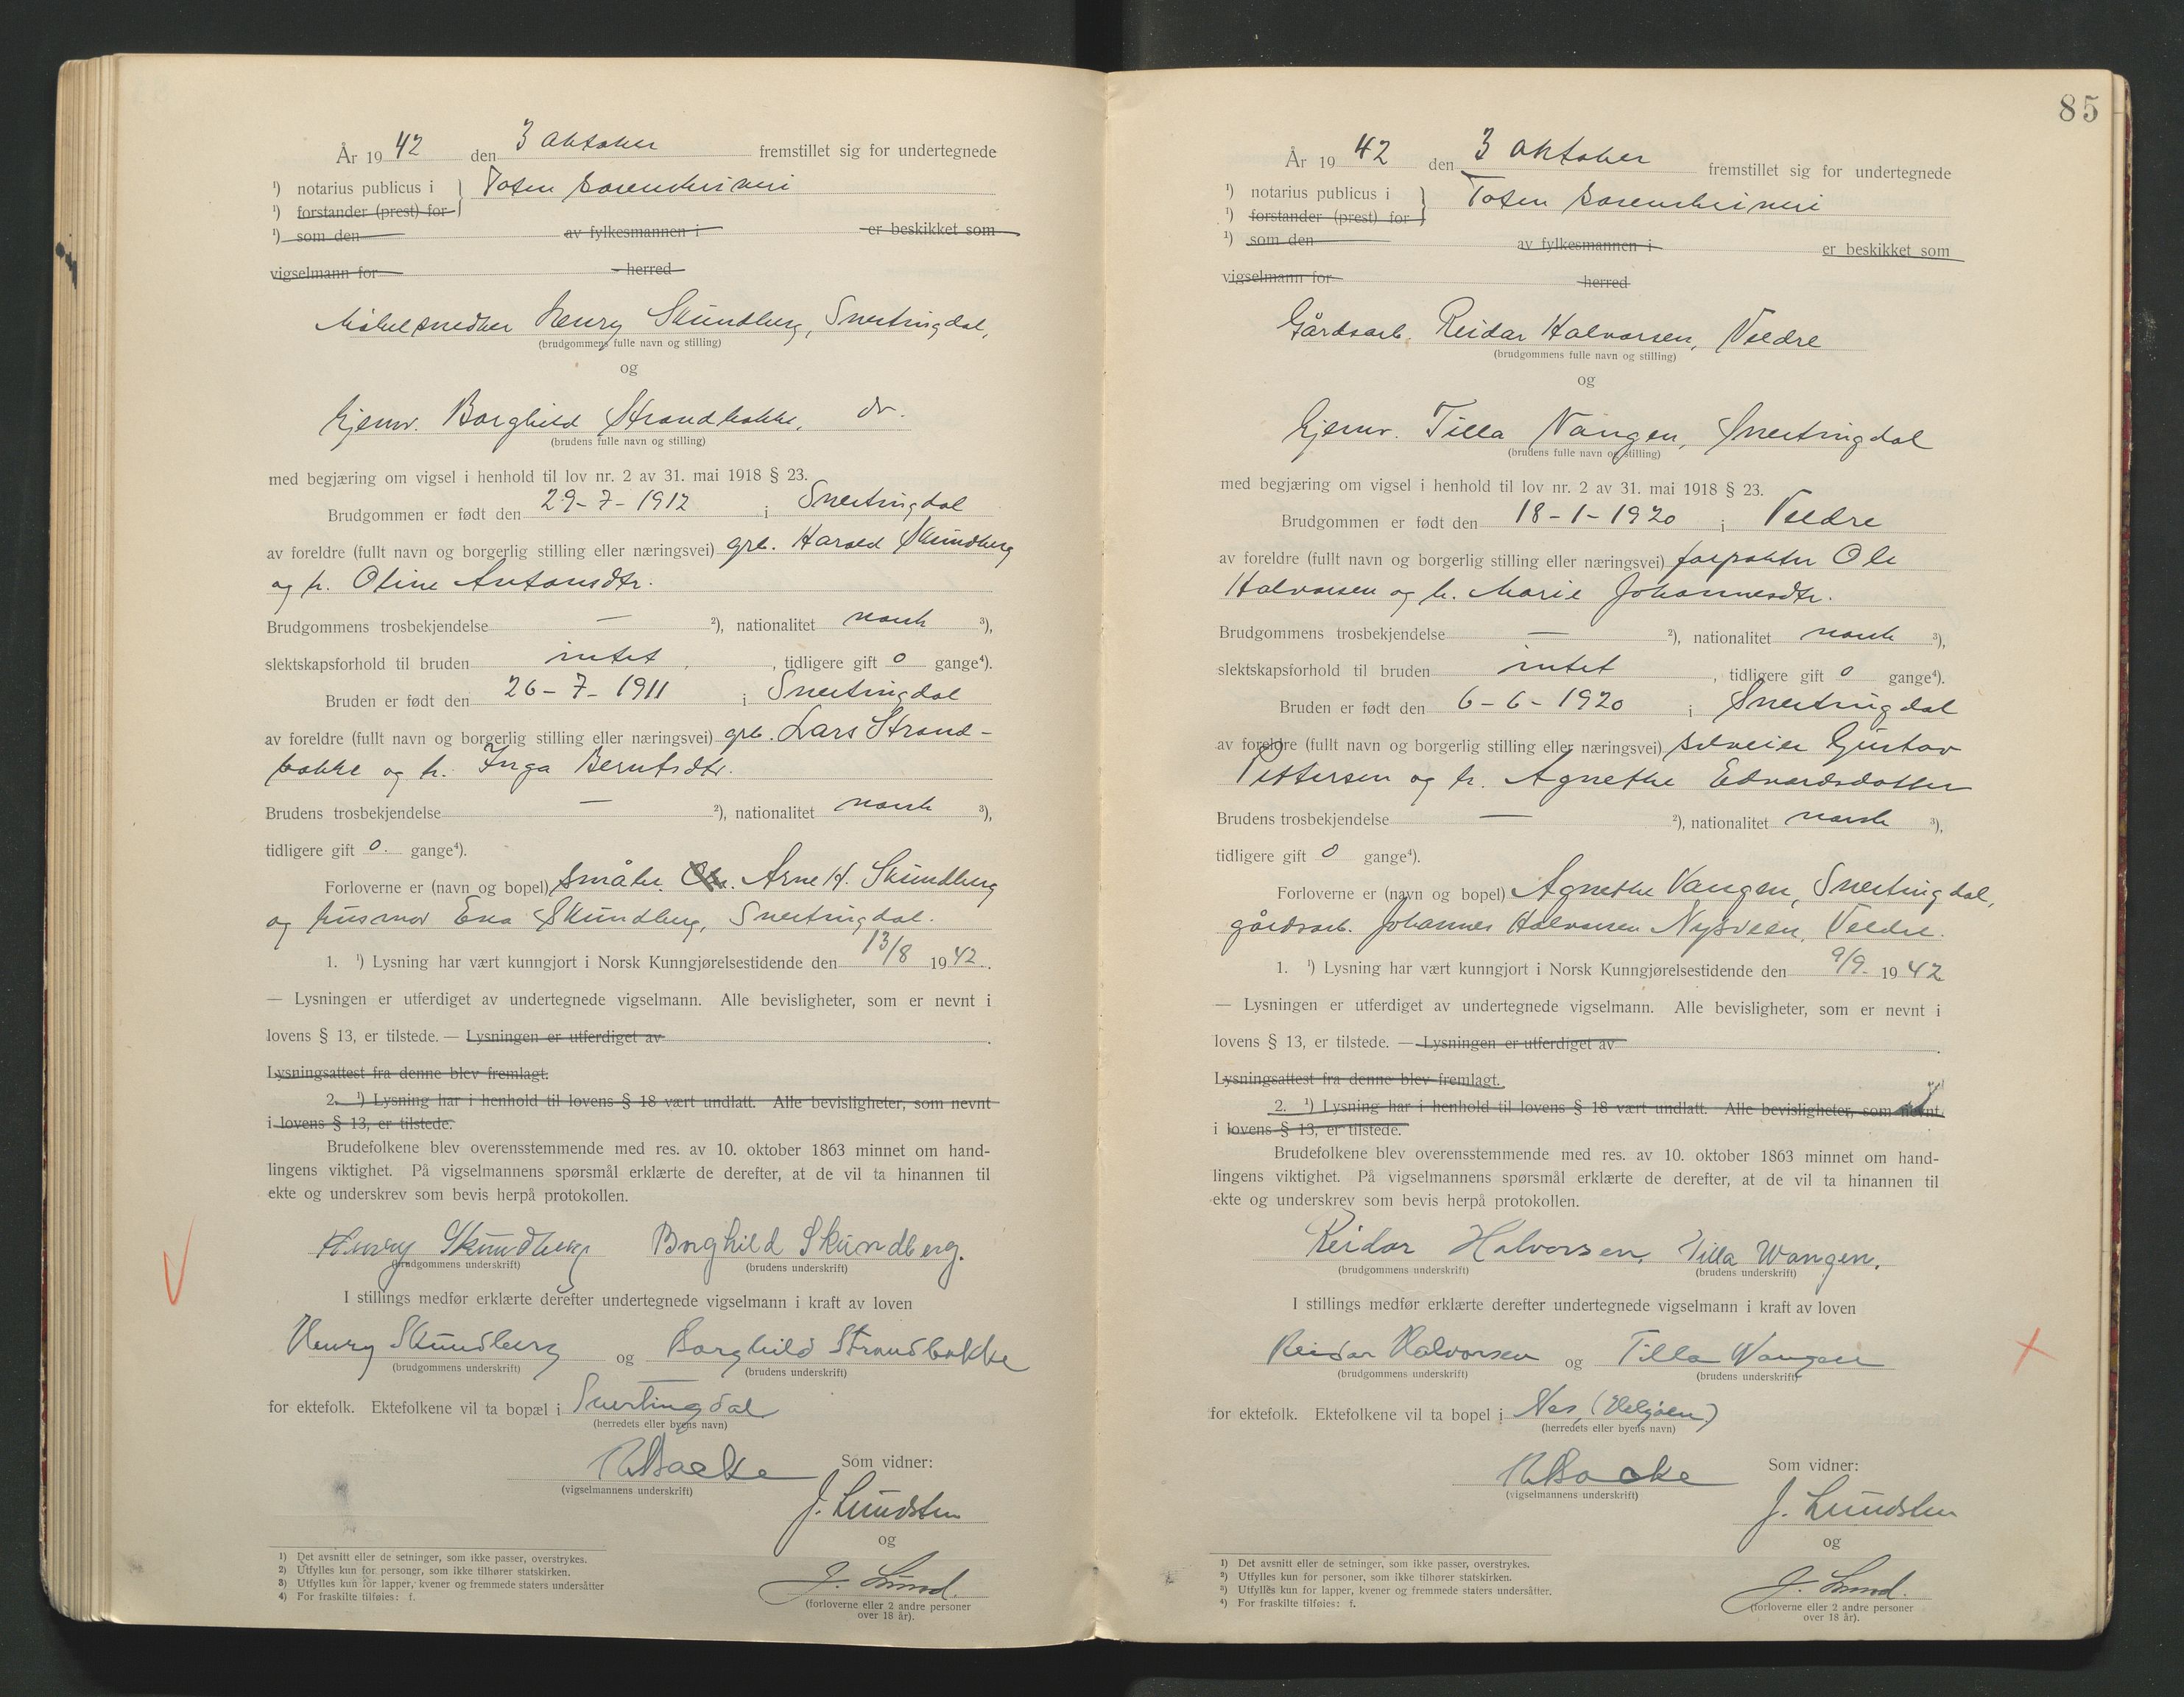 År 1942 den 3 oktober fremstillet sig for undertegnede
¹) notarius publicus i } Toten sorenskriveri
¹) forstander (prest) for
¹) som den av fylkesmannen i er beskikket som
vigselmann for herred
Møbelsnedker Henry Skundberg, Snertingdal,
(brudgommens fulle navn og stilling)
og
hjemv. Borghild Strandbakke, do.
(brudens fulle navn og stilling)
med begjæring om vigsel i henhold til lov nr. 2 av 31. mai 1918 § 23.
Brudgommen er født den 29-7-1912 i Snertingdal
av foreldre (fullt navn og borgerlig stilling eller næringsvei) grb. Harald Skundberg
og h. Oline Antonsdtr.
Brudgommens trosbekjendelse — ²), nationalitet norsk ³),
slektskapsforhold til bruden intet, tidligere gift 0 gange⁴).
Bruden er født den 26-7-1911 i Snertingdal
av foreldre (fullt navn og borgerlig stilling eller næringsvei) grb. Lars Strand-
bakke og h. Inga Berntsdtr.
Brudens trosbekjendelse — ²), nationalitet norsk ³),
tidligere gift 0. gange⁴).
Forloverne er (navn og bopel) småbr. Arne H. Skundberg
og husmor Eva Skundberg, Snertingdal.
1. ¹) Lysning har vært kunngjort i Norsk Kunngjørelsestidende den 13/8 1942.
— Lysningen er utferdiget av undertegnede vigselmann. Alle bevisligheter, som er nevnt i
lovens § 13, er tilstede. — Lysningen er utferdiget av
Lysningsattest fra denne blev fremlagt.
2. ¹) Lysning har i henhold til lovens § 18 vært undlatt. Alle bevisligheter, som nevnt
i lovens § 13, er tilstede.
Brudefolkene blev overensstemmende med res. av 10. oktober 1863 minnet om hand-
lingens viktighet. På vigselmannens spørsmål erklærte de derefter, at de vil ta hinannen til
ekte og underskrev som bevis herpå protokollen.
Henry Skundberg Borghild Skundberg.
(brudgommens underskrift) (brudens underskrift)
I stillings medfør erklærte derefter undertegnede vigselmann i kraft av loven
Henry Skundberg og Borghild Strandbakke
(brudgommens underskrift) (brudens underskrift)
for ektefolk. Ektefolkene vil ta bopæl i Snertingdal
(herredets eller byens navn)
Som vidner:
(vigselmannens underskrift)
J. Lundsten
og
J. Lund.
(forloverne eller 2 andre personer
over 18 år).
1) Det avsnitt eller de setninger, som ikke passer, overstrykes.
2) Utfylles kun for personer, som ikke tilhører statskirken.
3) Utfylles kun for lapper, kvener og fremmede staters undersåtter
4) For fraskilte tilføies: f.
85
År 1942 den 3 oktober fremstillet sig for undertegnede
¹) notarius publicus i } Toten sorenskriveri
¹) forstander (prest) for
¹) som den av fylkesmannen i er beskikket som
vigselmann for herred
Gårdsarb. Reidar Halvorsen, Veldre
(brudgommens fulle navn og stilling)
og
hjemv. Tilla Vangen, Snertingdal
(brudens fulle navn og stilling)
med begjæring om vigsel i henhold til lov nr. 2 av 31. mai 1918 § 23.
Brudgommen er født den 18-1-1920 i Veldre
av foreldre (fullt navn og borgerlig stilling eller næringsvei) forpakter Ole
Halvorsen og h. Marie Johannesdtr.
Brudgommens trosbekjendelse — ²), nationalitet norsk ³),
slektskapsforhold til bruden intet, tidligere gift 0 gange⁴).
Bruden er født den 6-6-1920 i Snertingdal
av foreldre (fullt navn og borgerlig stilling eller næringsvei) selveier Gustav
Pettersen og h. Agnethe Edvardsdatter
Brudens trosbekjendelse — ²), nationalitet norsk ³),
tidligere gift 0 gange⁴).
Forloverne er (navn og bopel) Agnethe Vangen, Snertingdal,
gårdsarb. Johannes Halvorsen Nysveen, Veldre.
1. ¹) Lysning har vært kunngjort i Norsk Kunngjørelsestidende den 9/9- 1942
— Lysningen er utferdiget av undertegnede vigselmann. Alle bevisligheter, som er nevnt i
lovens § 13, er tilstede. — Lysningen er utferdiget av
Lysningsattest fra denne blev fremlagt.
2. ¹) Lysning har i henhold til lovens § 18 vært undlatt. Alle bevisligheter, som nevnt
i lovens § 13, er tilstede.
Brudefolkene blev overensstemmende med res. av 10. oktober 1863 minnet om hand-
lingens viktighet. På vigselmannens spørsmål erklærte de derefter, at de vil ta hinannen til
ekte og underskrev som bevis herpå protokollen.
Reidar Halvorsen. Tilla Wangen.
(brudgommens underskrift) (brudens underskrift)
I stillings medfør erklærte derefter undertegnede vigselmann i kraft av loven
Reidar Halvorsen og Tilla Vangen
(brudgommens underskrift) (brudens underskrift)
for ektefolk. Ektefolkene vil ta bopel i Nes, (Helgøen)
(herredets eller byens navn)
Som vidner:
(vigselmannens underskrift)
J. Lundsten
og
J. Lund.
(forloverne eller 2 andre personer
over 18 år).
1) Det avsnitt eller de setninger, som ikke passer, overstrykes.
2) Utfylles kun for personer, som ikke tilhører statskirken.
3) Utfylles kun for lapper, kvener og fremmede staters undersåtter.
4) For fraskilte tilføies: f.